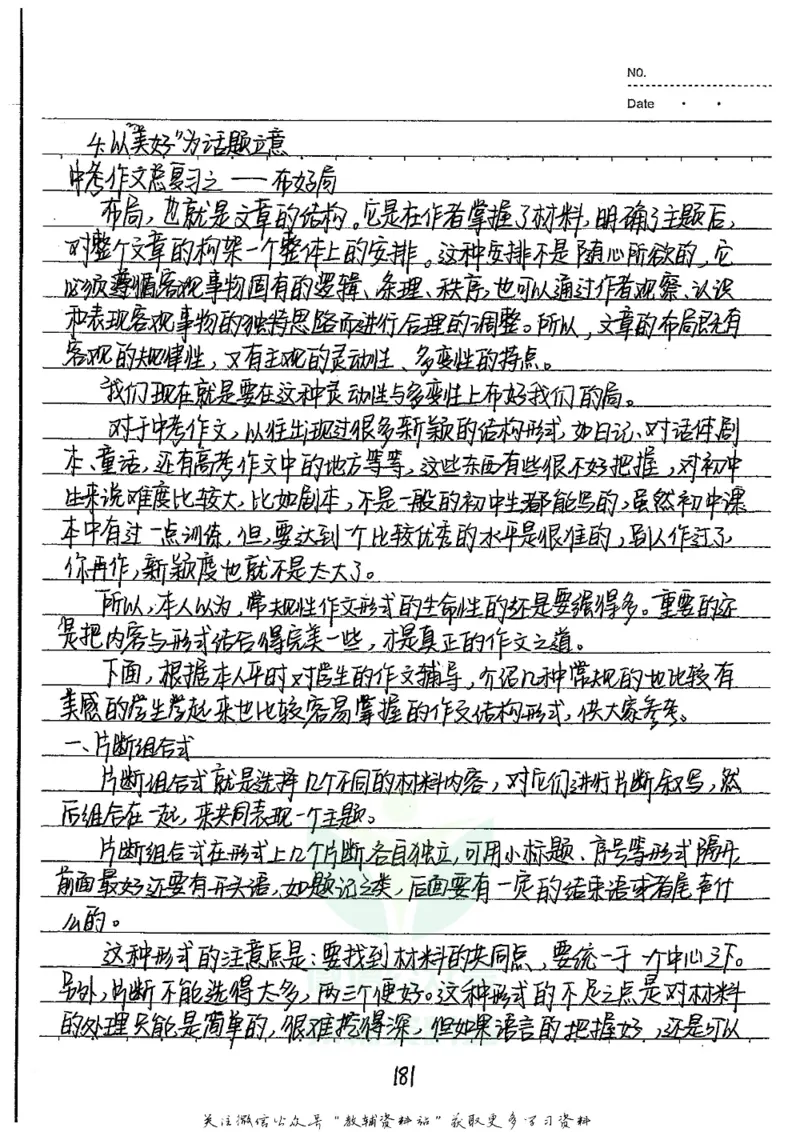 NO.
Date
4.以"美好"为话题立意
中考作文总复习之——布好局
布局,也就是文章的结构。它是在作者掌握了材料,明确了主题后,
对整个文章的构架一个整体上的安排。这种安排不是随心所欲的,它
必须遵循客观事物固有的逻辑、条理、秩序,也可以通过作者观察、认识
和表现客观事物的独特思路而进行合理的调整。所以,文章的布局既有
客观的规律性,又有主观的灵动性、多变性的特点。
我们现在就是要在这种灵动性与多变性上布好我们的局。
对于中考作文,以往出现过很多新颖的结构形式,如日记、对话体剧
本、童话,还有高考作文中的地方等等,这些东西有些很不好把握,对初中
生来说难度比较大,比如剧本,不是一般的初中生都能写的,虽然初中课
本中有过一点训练,但,要达到一个比较优秀的水平是很难的,别人作过了,
你再作,新颖度也就不是太大了。
所以,本人以为,常规性作文形式的生命性的还是要强得多。重要的还
是把内容与形式结合得完美一些,才是真正的作文之道。
下面,根据本人平时对学生的作文辅导,介绍几种常规的也比较有
美感的学生学起来也比较容易掌握的作文结构形式,供大家参考。
一、片断组合式
片断组合式就是选择几个不同的材料内容,对它们进行片断叙写,然
后组合在一起,来共同表现一个主题。
片断组合式在形式上几个片断各自独立,可用小标题、序号等形式隔开,
前面最好还要有开头语,如题记之类,后面要有一定的结束语或者尾声什
么的。
这种形式的注意点是:要找到材料的共同点,要统一于一个中心之下。
另外,片断不能选得太多,两三个便好。这种形式的不足之点是对材料
的处理只能是简单的,很难挖得深,但如果语言的把握好,还是可以
181
关注微信公众号"教辅资料站"获取更多学习资料